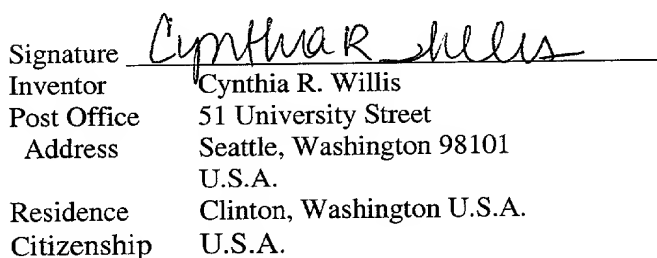 Signature Cynthia R Willis
Inventor Cynthia R. Willis
Post Office 51 University Street
Address Seattle, Washington 98101
U.S.A.
Residence Clinton, Washington U.S.A.
Citizenship U.S.A.